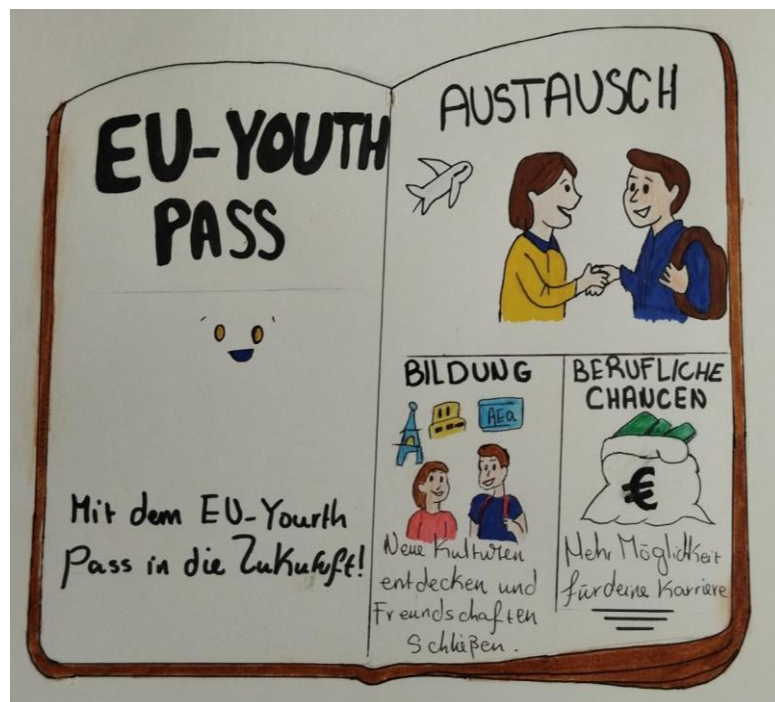 EU-YOUTH
PASS
Mit dem EU-Yourth
Pass in die Zukukft!
AUSTAUSCH
BILDUNG
AEa
Neue Kulturen
entdecken und
Freundschaften
Schließen.
BERUFLICHE
CHANCEN
€
Mehr Möglichkeit
für deine Karriere